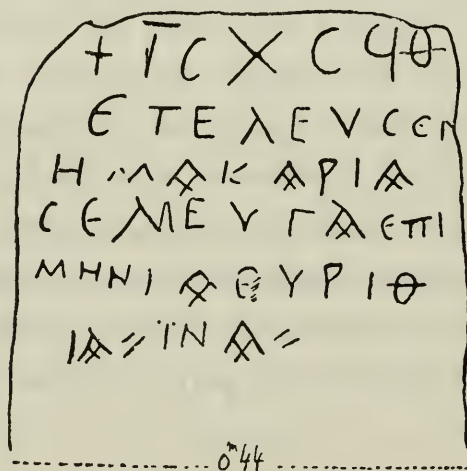 + Ι̅ C Χ C ϤΘ
Є Τ Ε Λ Ε V C Є Ν
Η Μ Α Κ Α Ρ Ι Α
C Є Μ Ε V Γ Α Є Π Ι
Μ Η Ν Ι Α Θ Υ Ρ Ι Θ
Ι Α // Ι Ν Α //
0ᵐ44